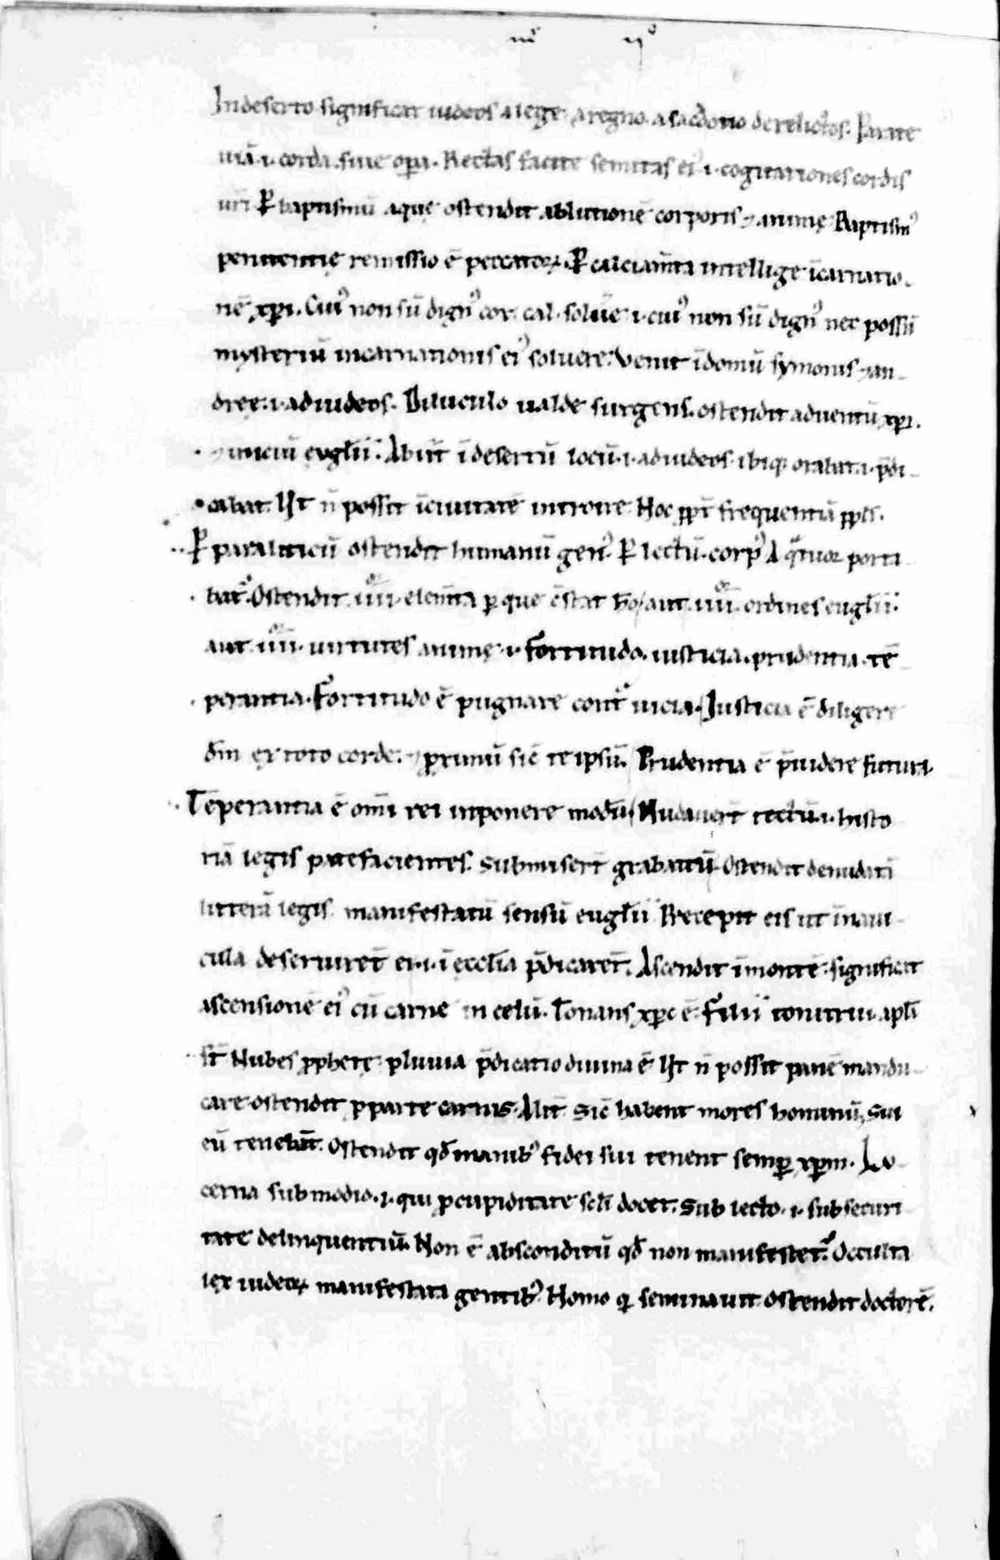 In deserto significat iudeos a lege. a regno. a sac̄dotio derelictos. Parate
uiā .i. corda siue oꝑa. Rectas facite semitas ei᷒ .i. cogitationes cordis
ur̄i Ꝑ baptismū aquę ostendit ablutionē corporis ⁊ animę Baptism᷒
penitentię remissio ē peccatoꝝ. Ꝑ calciam̄ta intellige īcarnatio
nē xp̄i. Cui᷒ non sū dign᷒ cor. cal. soluē .i. cui᷒ non sū dign᷒ nec possū
mysteriū incarnationis ei᷒ soluere. Venit ī domū symonis ⁊ an
dreę .i. ad iudeos. Diluculo ualde surgens. ostendit aduentū xp̄i.
⁊ iniciū eugl̄ii. Abiit ī desertū locū .i. ad iudeos. ibiq; orabat .i. p̄di
cabat. Ut n̄ possit ī ciuitatē introire Hoc ꝓpt̄ frequentiā ppl̄i.
Ꝑ paraliticū ostendit humanū gen᷒. Ꝑ lectū. corp᷒ A q̄tuor porta
bat᷑. Ostendit iiii or elem̄ta ꝑ que c̄stat hō aut iiii or ordines eugl̄ii.
aut iiii or uirtutes animę .i. fortitudo. iusticia. prudentia. tē
perantia. Fortitudo ē pugnare cont̄ uicia. Justicia ē diligere
dm̄ ex toto corde. ⁊ ꝓximū sic̄ te ipsū. Prudentia ē p̄uidere futura.
Tēperantia ē om̄i rei inponere modū Nudauer̄t tectū .i. histo
riā legis patefacientes. Submiser̄t grabattū Ostendit denudatā
litterā legis manifestatū sensū eugl̄ii Precepit eis ut ī naui
cula deseruiret̄ ei .i. ī eccl̄ia p̄dicaret̄. Ascendit ī montē. significat
ascensionē ei᷒ cū carne in celū. Tonans xp̄c ē. Filii tonitrui. apl̄i
st̄ Nubes ꝓphetę pluuia p̄dicatio diuina ē Ut n̄ possit panē mandu
care ostendit ꝓ parte carnis. Alit̄ Sic̄ habent mores hominū, Sui
eū tenebāt. Ostendit qd̄ manib᷒ fidei sui tenent semꝑ xp̄m. Lu
cerna sub modio .i. qui ꝓ cupiditate scl̄i docet. Sub lecto .i. sub securi
tate delinquentiū. Non ē absconditū qd̄ non manifestet᷑. Occulta
lex iudeoꝝ manifestata gentib᷒. Homo q̄ seminauit Ostendit doctorē.